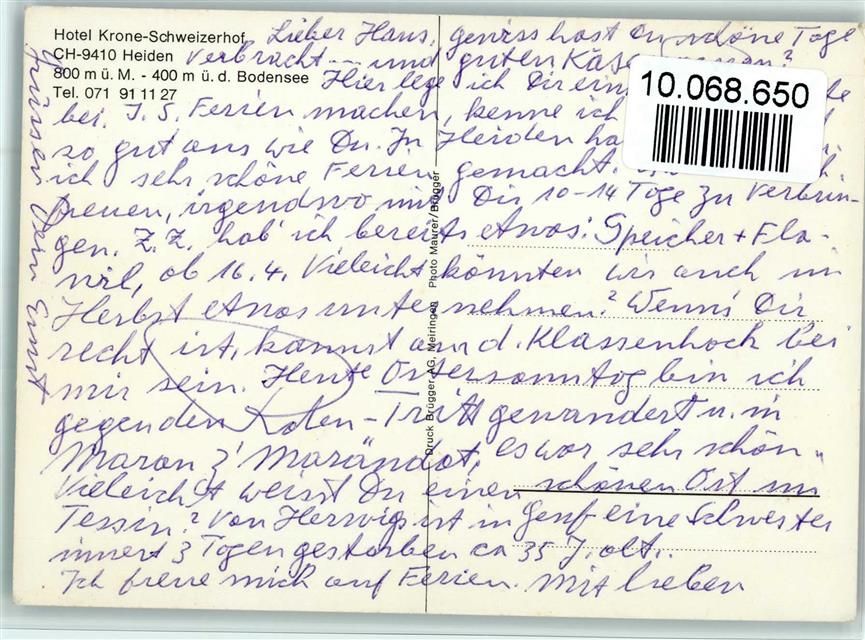 Hotel Krone-Schweizerhof
CH-9410 Heiden
800 m ü. M. - 400 m ü. d. Bodensee
Tel. 071 91 11 27
10.068.650
Druck Brügger AG, Meiringen Photo Maurer/Brügger
Lieber Hans, gewiss hast Du schöne Tage
verbracht -- und guten Käse
Hier lege ich Dir ein
bei. J. S. Ferien machen, kenne ich
so gut aus wie Du. In Heiden
ich sehr schöne Ferien gemacht.
freuen, irgendwo mit Dir 10-14 Tage zu verbrin-
gen. Z.Z. hab' ich bereits etwas: Speicher + Fla-
wil, ab 16.4. Vieleicht könnten wir auch im
Herbst etwas unternehmen? Wenns Dir
recht ist, kannst am d. Klassenhock bei
mir sein. Heute Ostersonntag bin ich
gegen den Roten-Tritt gewandert u. in
Maran z' Marändat, es war sehr schön.
Vieleicht weisst Du einen schönen Ort im
Tessin? Von Herwigs ist in Genf eine Schwester
innert 3 Tagen gestorben ca 35 J. alt..
Ich freue mich auf Ferien. Mit lieben
Grüssen Dein Ernst